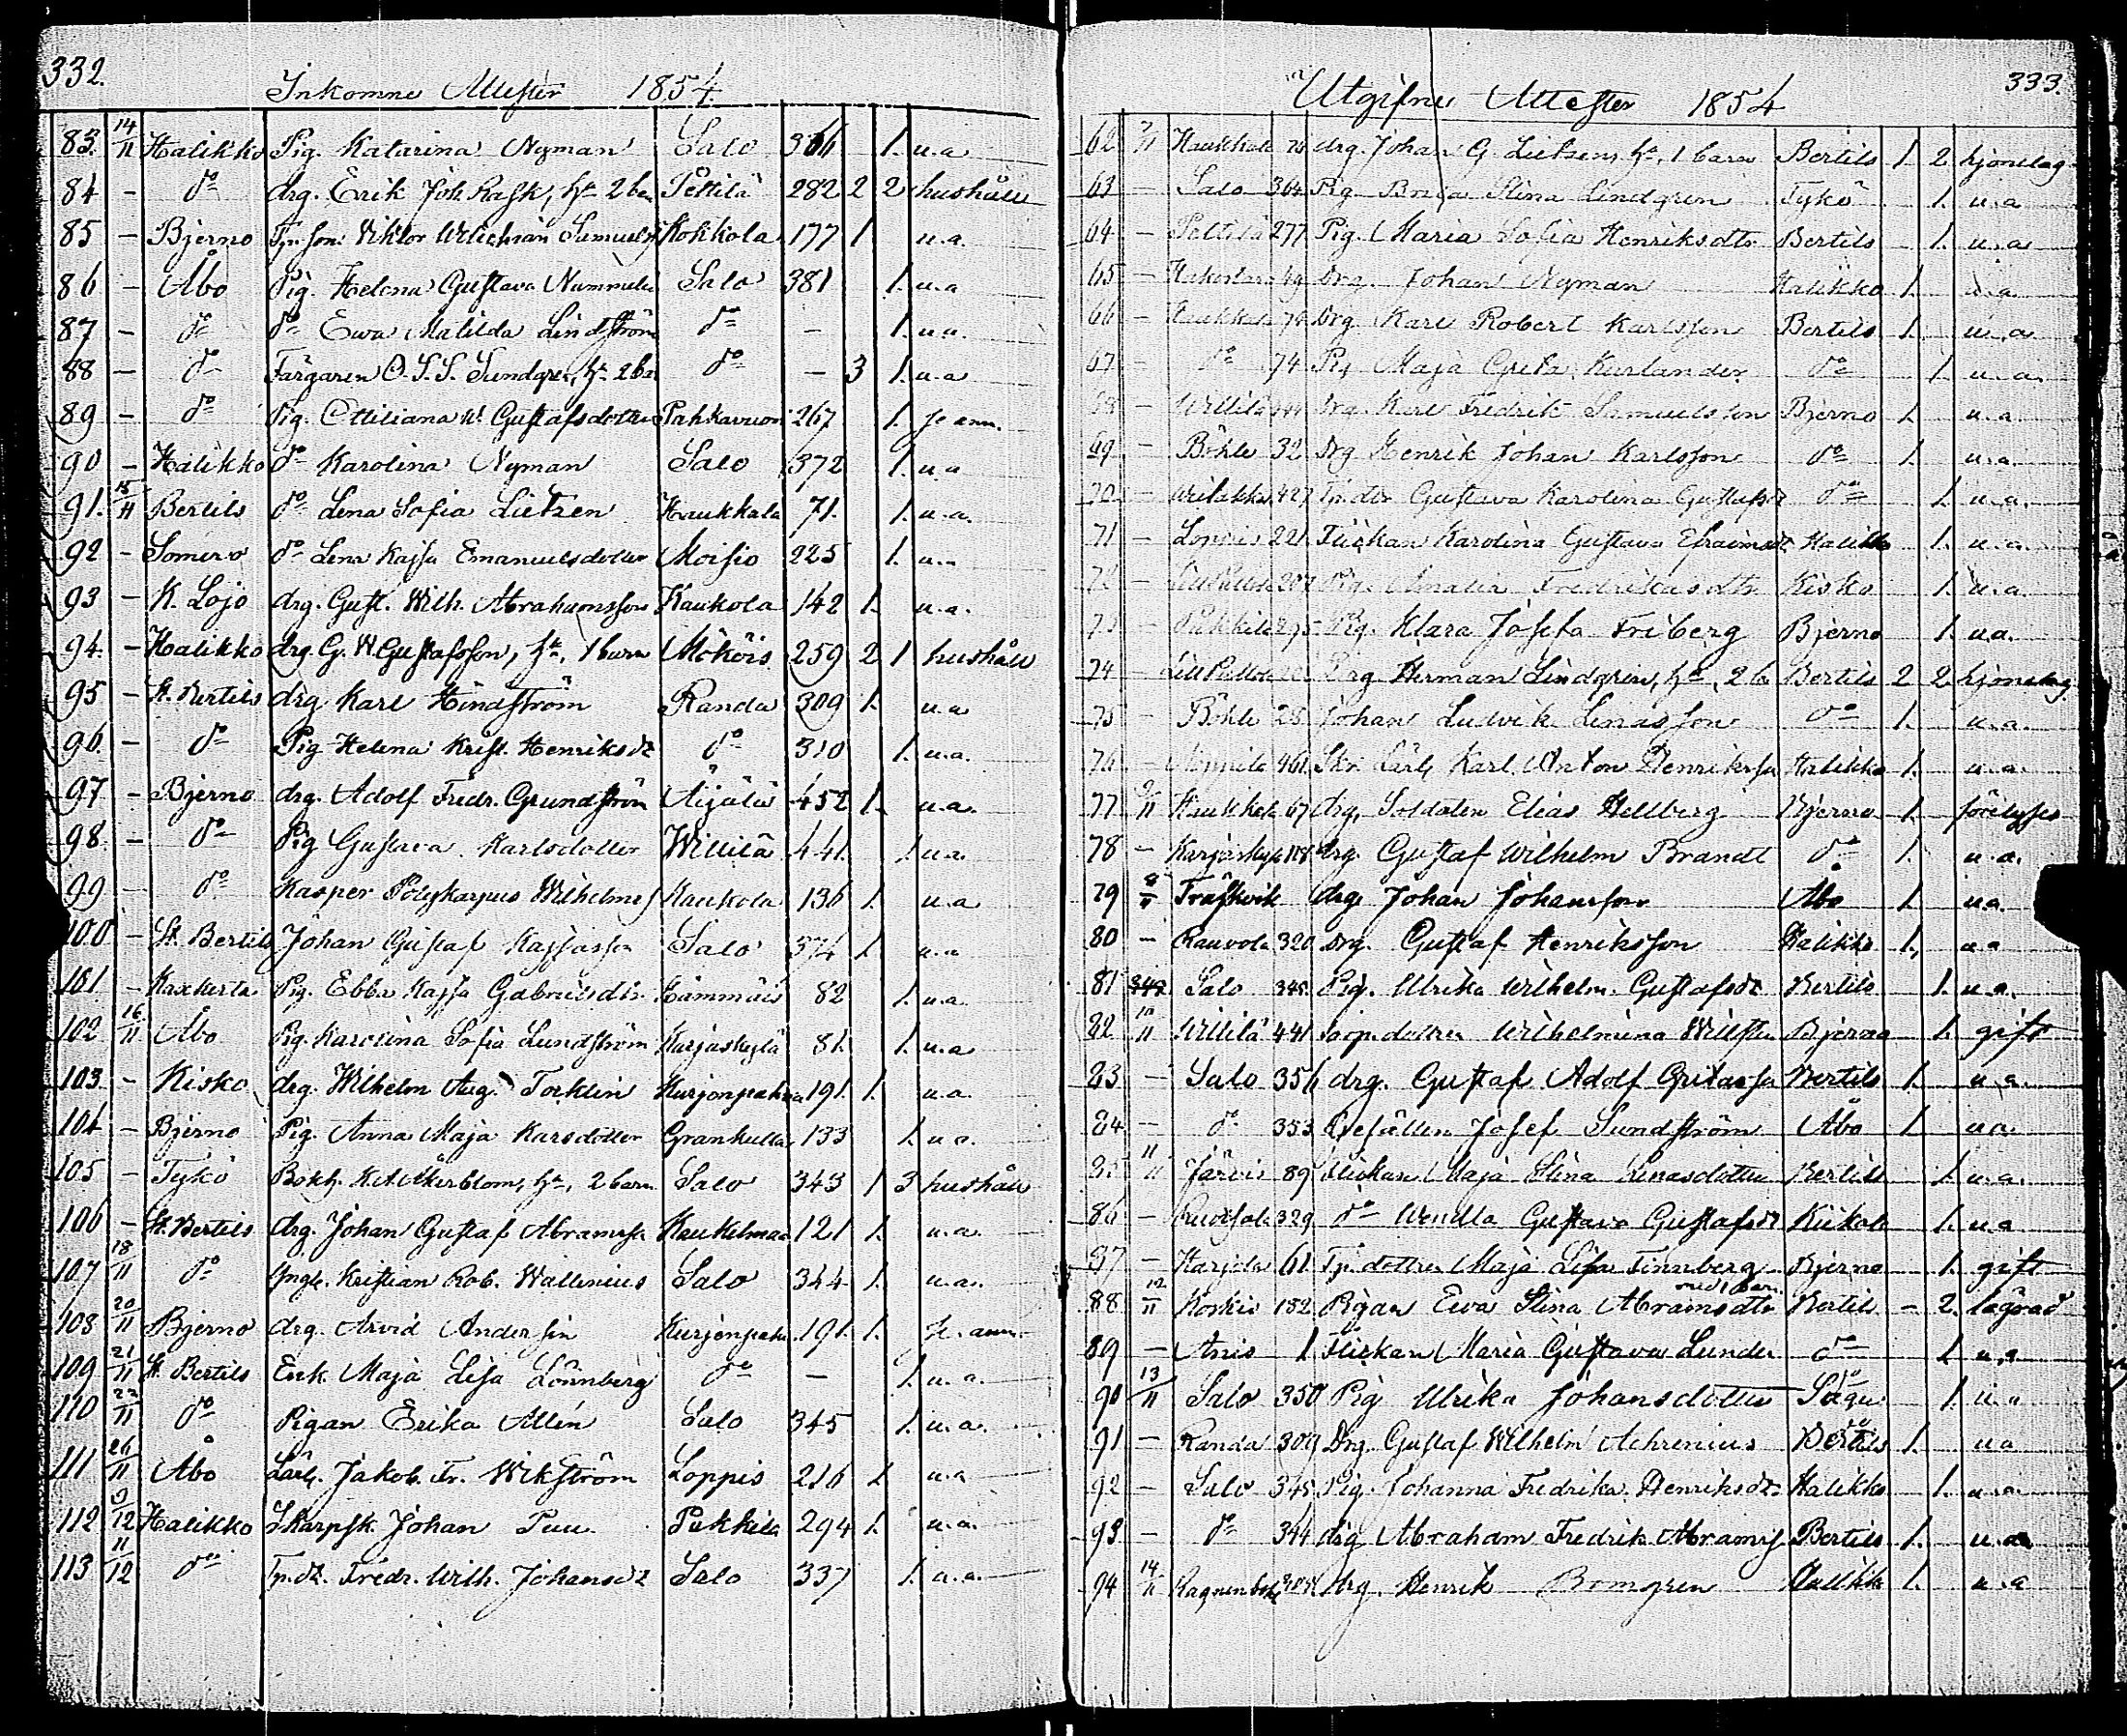 332.
Inkomne Attester 1854.
83. 14/11 Halikko Pig. Katarina Nyman Salo 366 1. u.a
84 - do drg. Erik Joh. Rask, hu 2 barn Pettilä 282 2 2 hushåll
85 - Bjerno Tp. son Viktor Samuels Kokkola 177 1 u.a.
86 - Åbo Pig. Helena Gustava Nummelin Salo 381 1. u.a
87 - do do Ewa Matilda Lindström do - 1. u.a.
88 - do Färgaren O. S. S. Sundgren, hu 2 ba do - 3 1. u.a
89 - do Pig. Ottiliana W. Gustafsdotter Pahkavuori 267 1. se anm.
90 - Halikko do Karolina Nyman Salo 372 1. u.a
91. 15/11 Bertils do Lena Sofia Lietzen Haukkala 71. 1. u.a.
92 - Somero do Lena Kajsa Emanuelsdotter Moisio 225 1. u.a
93 - K. Lojo drg. Gust. Wilh. Abrahamsson Kaukola 142 1. u.a.
94. - Halikko drg. G. W. Gustafsson, hu, 1 barn Mököis 259 2 1 hushåll
95 - St. Bertils drg Karl Hindström Randa 309 1. u.a
96. - do Pig Helena Krist. Henriksdr do 310 1. u.a.
97 - Bjerno drg. Adolf Fredr. Grundström Äijälä 452 1. u.a.
98. - do Pig Gustava Karlsdotter Willilä 441. 1 u.a.
99 - do Kasper Polykarpus Wilhelms Kaukola 136 1. u.a
100 - St. Bertils Johan Gustaf Kajsasson Salo 374 1. u.a
101 - Kaxkerta Pig. Ebba Kajsa Gabrielsdtr. Hämmäis 82 1. u.a.
102 16/11 Åbo Pig. Karolina Sofia Lundström Karjaskylä 81. 1. u.a
103. - Kisko drg. Wilhelm Aug. Torklin Kurjenpahna 191. 1. u.a.
104 - Bjerno Pig. Anna Maja Karsdotter Grankulla 133 1. u.a.
105 - Tykö Bokh. K. A. Åkerblom, hu, 2 barn Salo 343 1 3 hushåll
106 - St. Bertils drg. Johan Gustaf Abramsson Haukelmaa 121 1. u.a.
107 18/11 do Yngl. Kristian Rob. Wallenius Salo 344 1. u.a.
108 20/11 Bjerno drg. Arvid Andersin Kurjenpahna 191. 1. se anm.
109 21/11 St. Bertils Enk. Maja Lisa Lönnberg do - 1. u.a.
110 22/11 do Pigan Erika Allén Salo 345 1. u.a.
111 26/11 Åbo Lärl. Jakob. Fr. Wikström Loppis 216 1 u.a
112 9/12 Halikko Skarpsk. Johan Puu Pukkila 294 1. u.a.
113 11/12 do Tp. dr. Fredr. Wilh. Johansdr Salo 337 1. u.a.
333.
Utgifne Attester 1854
62 7/11 Haukkala 75 drg. Johan G. Lietzen, hu, 1 barn Bertils 1. 2 hjonelag
63 - Salo 364 Pig Brita Stina Lindgren Tykö 1. u.a
64 - Pettilä 277 Pig. Maria Sofia Henriksdtr Bertils 1. u.a
65 - 49 Drg. Johan Nyman Halikko 1. u.a.
66 - Haukkala 74 Drg Karl Robert Karlsson Bertils 1. u.a
67 - do 74 Pig Maja Greta Kurlander do 1 u.a.
68 - Willilä 441 Drg. Karl Fredrik Samuelsson Bjerno 1. u.a
69 - Böhle 32 Drg Henrik Johan Karlsson do 1. u.a.
70 - 427 Tp. dtr Gustava Karolina Gustafsdr do 1. u.a.
71 - Loppis 221 Flickan Karolina Gustava Efraimsdr Halikko 1. u.a.
72 - 207 Pig. Amalia Fredrikasdtr. Kisko 1. u.a.
73 - Pukkila 295 Pig. Klara Josefa Friberg Bjerno 1. u.a.
74 - Drg Herman Lindgren, hu, 2 b Bertils 2 2 hjonelag
75 - Böhle 28 Johan Ludvik Linasson do 1. u.a.
76 - 461 Skr. Lärl. Karl Anton Henriksson Halikko 1. u.a.
77 9/11 Haukkala 67 drg. Soldaten Elias Hellberg Bjerno 1. förelyses
78 - Karjaskylä 118 drg. Gustaf Wilhelm Brandt do 1. u.a.
79 8/11 Träskvik drg. Johan Johansson Åbo 1. u.a.
80 - Rauvola 320 drg. Gustaf Henriksson Halikko 1. u.a
81 Salo 345 Pig. Ulrika Wilhelm. Gustafsdr Bertils 1. u.a.
82 10/11 Willilä 441 Wilhelmina Bjerno 1. gift
83 - Salo 356 drg. Gustaf Adolf Gretasson Bertils 1. u.a.
84 - do 353 Gesällen Josef Sundström Åbo 1. u.a.
85 11/11 Järvis 89 Flickan Maja Stina Linasdotter Bertils 1. u.a.
86 - 329 do Wendla Gustava Gustafsdr Kiikala 1. u.a
87 - 61 Tp. dotter Maja Lisa Finnberg Bjerno 1. gift
88 12/11 Koskis 182 Pigan Ewa Stina Abramsdtr med 1 barn Bertils - 2. lägrad
89 - Anis 1 Flickan Maria Gustava Lunden do 1 u.a
90 13/11 Salo 350 Pig Ulrika Johansdotter Sagu 1. u.a
91 - Randa 309 Drg. Gustaf Wilhelm Achrenius Bertils 1. u.a
92 - Salo 345 Pig. Johanna Fredrika Henriksdr Halikko 1. u.a
93 - do 344 drg Abraham Fredrik Abrams Bertils 1. u.a
94 14/11 drg. Henrik Bomgren Halikk 1. u.a